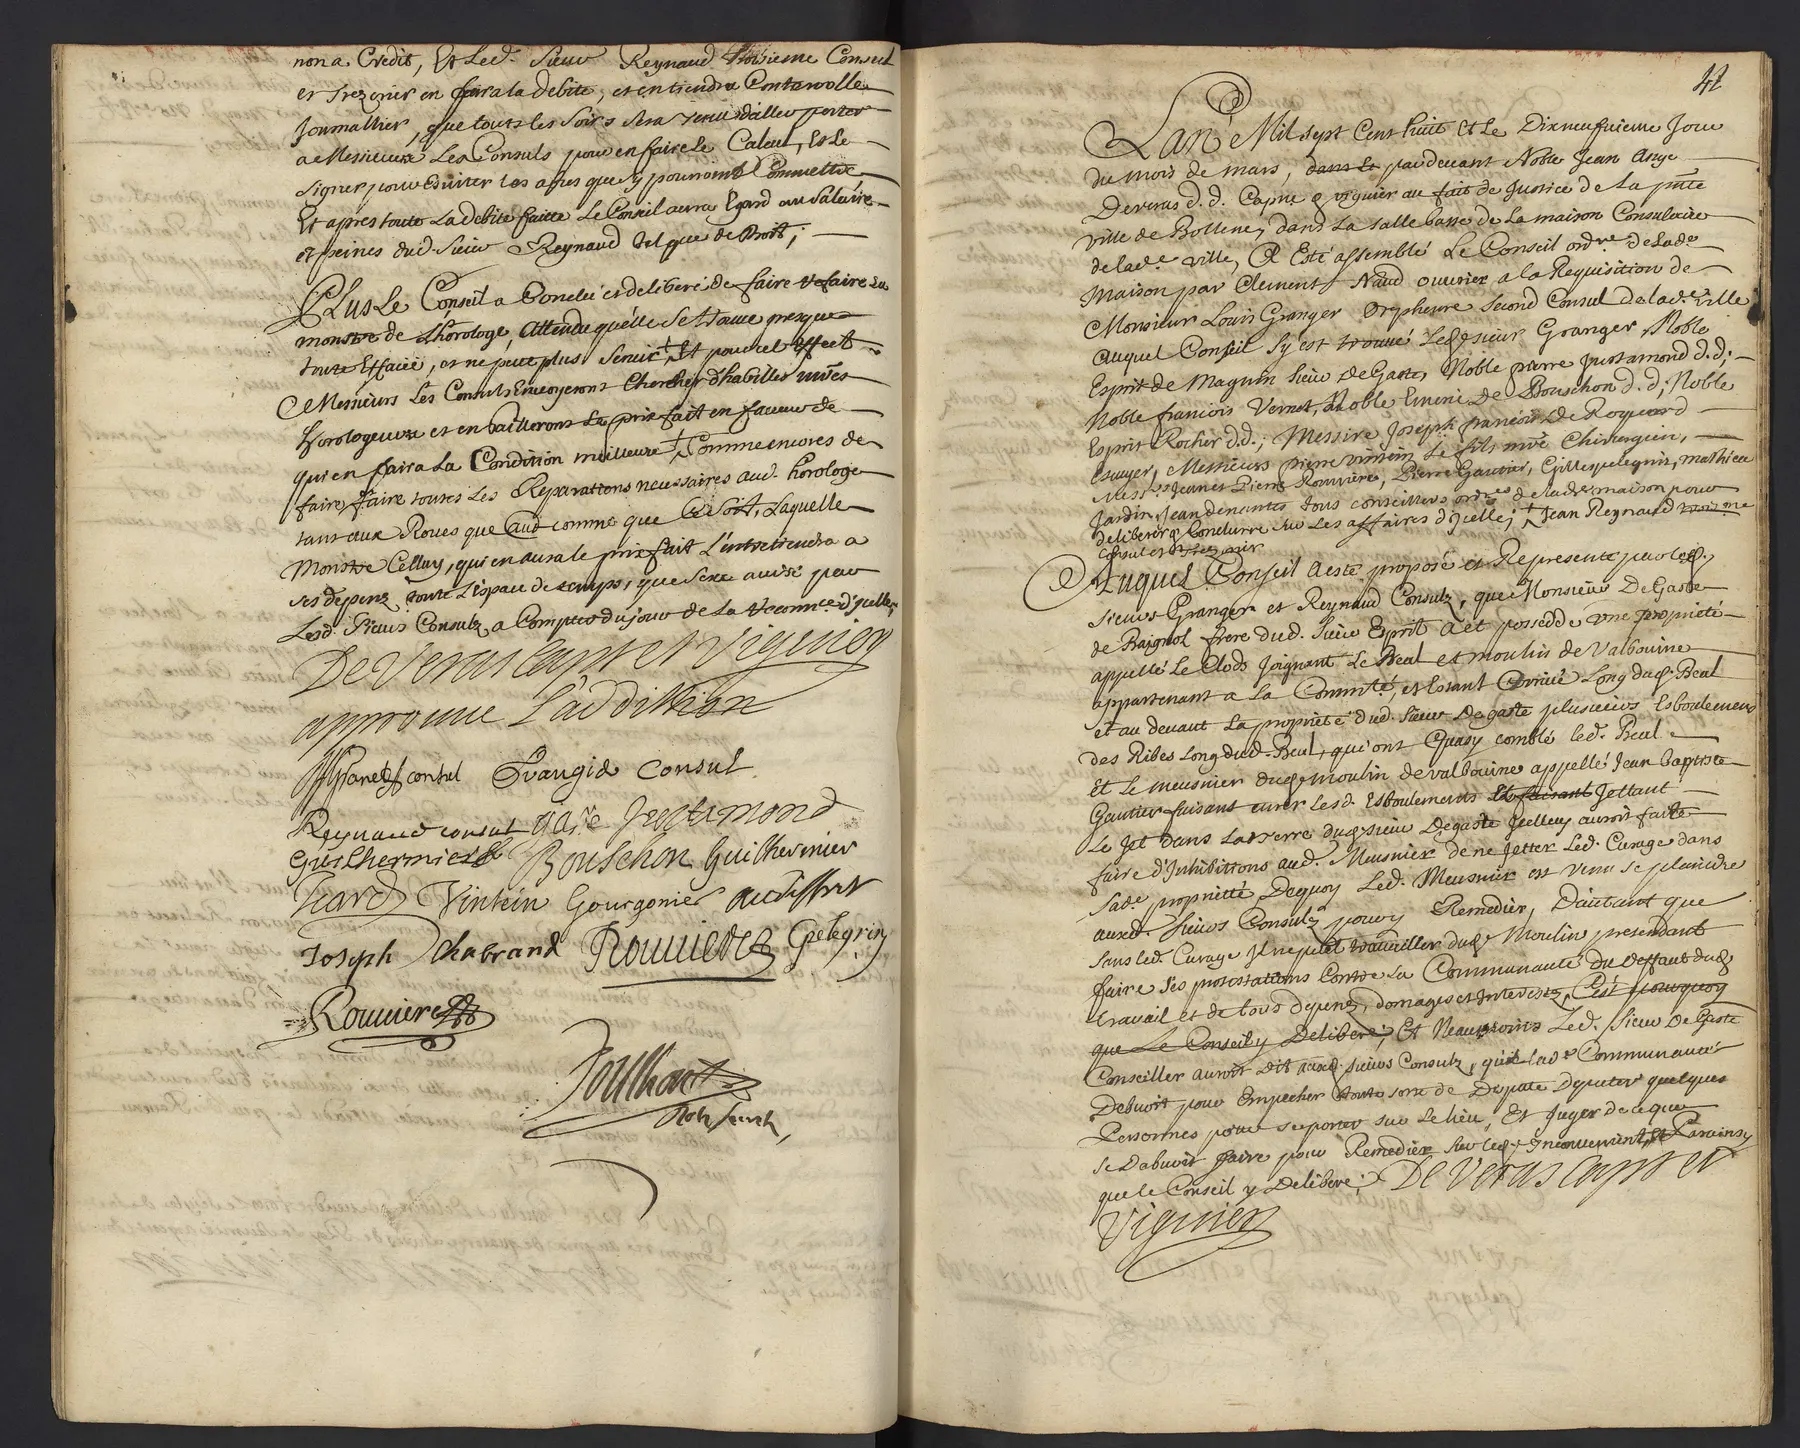 non a Credit, Et Led. Sieur Reynaud troisieme Consul
et trezorier en faira la debite, et en tiendra Contarrolle
Journallier, que touts les soirs sera tenu d'aller porter
a Messieurs Les Consuls pour en faire Le Calcul, Et Le
signer pour Esuiter les abus que sy pourroint Commettre
Et apres toute La debite faitte Le Conseil aura Egard au Salaire
et peines dud. Sieur Reynaud tel que de droit;
Plus Le Conseil a Conclu et deliberé de faire refaire La
monstre de Lhorologe, attendu qu'elle se trouve presque
toute Effacée, et ne peut plus seruir, Et pour cet effect
Messieurs Les Consuls Enuoyeront Chercher d'habilles mres
horologeurs et en bailleront Le prix fait en faueur de
qui en faira La Condition meilleure, Comme encores de
faire faire toutes Les Reparations necessaires aud. horologe
tant aux Roues que aud comme que Ce soit, Laquelle
monstre Celluy, qui en aura le prix fait L'entretiendra a
ses depenz toute L'espace de temps, que sera auisé par
Lesd. Sieurs Consulz a Compter du jour de La Reconnce d'ycelle,
De Verus Capne et Viguier
approuue L'addition
Granet consul Frangié Consul
Reynaud consul Gaste Justamond
Guilhermier Bouschon Guilhermier
Viard Vintein Gourgonier audiffret
Joseph Chabrand Rouuiere Pelegrin
Rouuiere
Poulhard
Notre Secret.
42
Lan Mil sept Cent huit Et Le Dixneufuieme Jour
du mois de mars, dans Le pardeuant Noble Jean Ange
Deverus d. d. Capne & viguier au fait de Justice de La pnte
ville de Bollene, dans La salle basse de La maison Consulaire
de lade ville, A Esté assemblé Le Conseil ordre delade
maison par Clement Naud ouurier a la Requisition de
Monsieur Louis Granger Orpheure second Consul delade ville
auquel Conseil sy est trouué Led. sieur Granger, Noble
Esprit de Magnin sieur De Gaste, Noble pierre Justamond d. d.
Noble francois Vernet, Noble Emeni De Bouschon d. d; Noble
Esprit Rocher d. d.; Messire Joseph francois De Roquard
Escuyer, Messieurs pierre Vintein Le fils mre Chirurgien,
Messrs Jean et Pierre Rouuiere, Pierre Gautier, Gilles pelegrin, Mathieu
Jardin, Jean denantes tous conseillers ordres de lade maison pour
deliberer & Conclurre sur Les affaires d'Jcelle; Jean Reynaud troisme
consul et trezorier
Auquel Conseil a esté proposé et Representé par lesd.
sieurs Granger et Reynaud Consulz, que Monsieur De Gaste
de Baignol frere dud. sieur Esprit a et possedde vne proprieté
appellé Le Clos Joignant Le Beal et moulin de Valbouine
appartenant a La Commté, et Estant arriué Long dud. Beal
et au deuant La proprieté dud. sieur Degaste plusieurs Esboulemens
des Ribes Long dud. Beal, qu'ont Quasy comblé led. Beal
Et Le meusnier dud. moulin de valbouine appellé Jean baptiste
Gautier faisant curer Lesd. Esboulements Et faisant Jettant
Le Jet dans La terre dud. sieur Degaste Jcelluy auroit faitte
faire d'Jnhibittions aud. Meusnier de ne Jetter Led. Curage dans
Sade proprietté, Dequoy Led. Meusnier est venu se plaindre
auxd. Sieurs Consulz pour y Remedier, D'autant que
sans led. Curage Jl ne peut trauailler dud. Moulin pretendant
faire ses protestations Contre La Communauté du Deffaut dud.
trauail et de tous depenz, domages et Jnterests, C'est pourquoy
que Le Conseil y Delibere; Et Neaumoints Led. Sieur De Gaste
Conseiller auroit dit auxd. sieurs Consulz, que lade Communauté
Debuoit pour Empecher toute sorte de Dispute Deputer quelques
Personnes pour se porter sur Le lieu, Et Juger de ce que
se Debuoit faire pour Remedier sur led. Jnconuenient, Et Parainsy
que le Conseil y Delibere; De Verus Capne et
Viguier